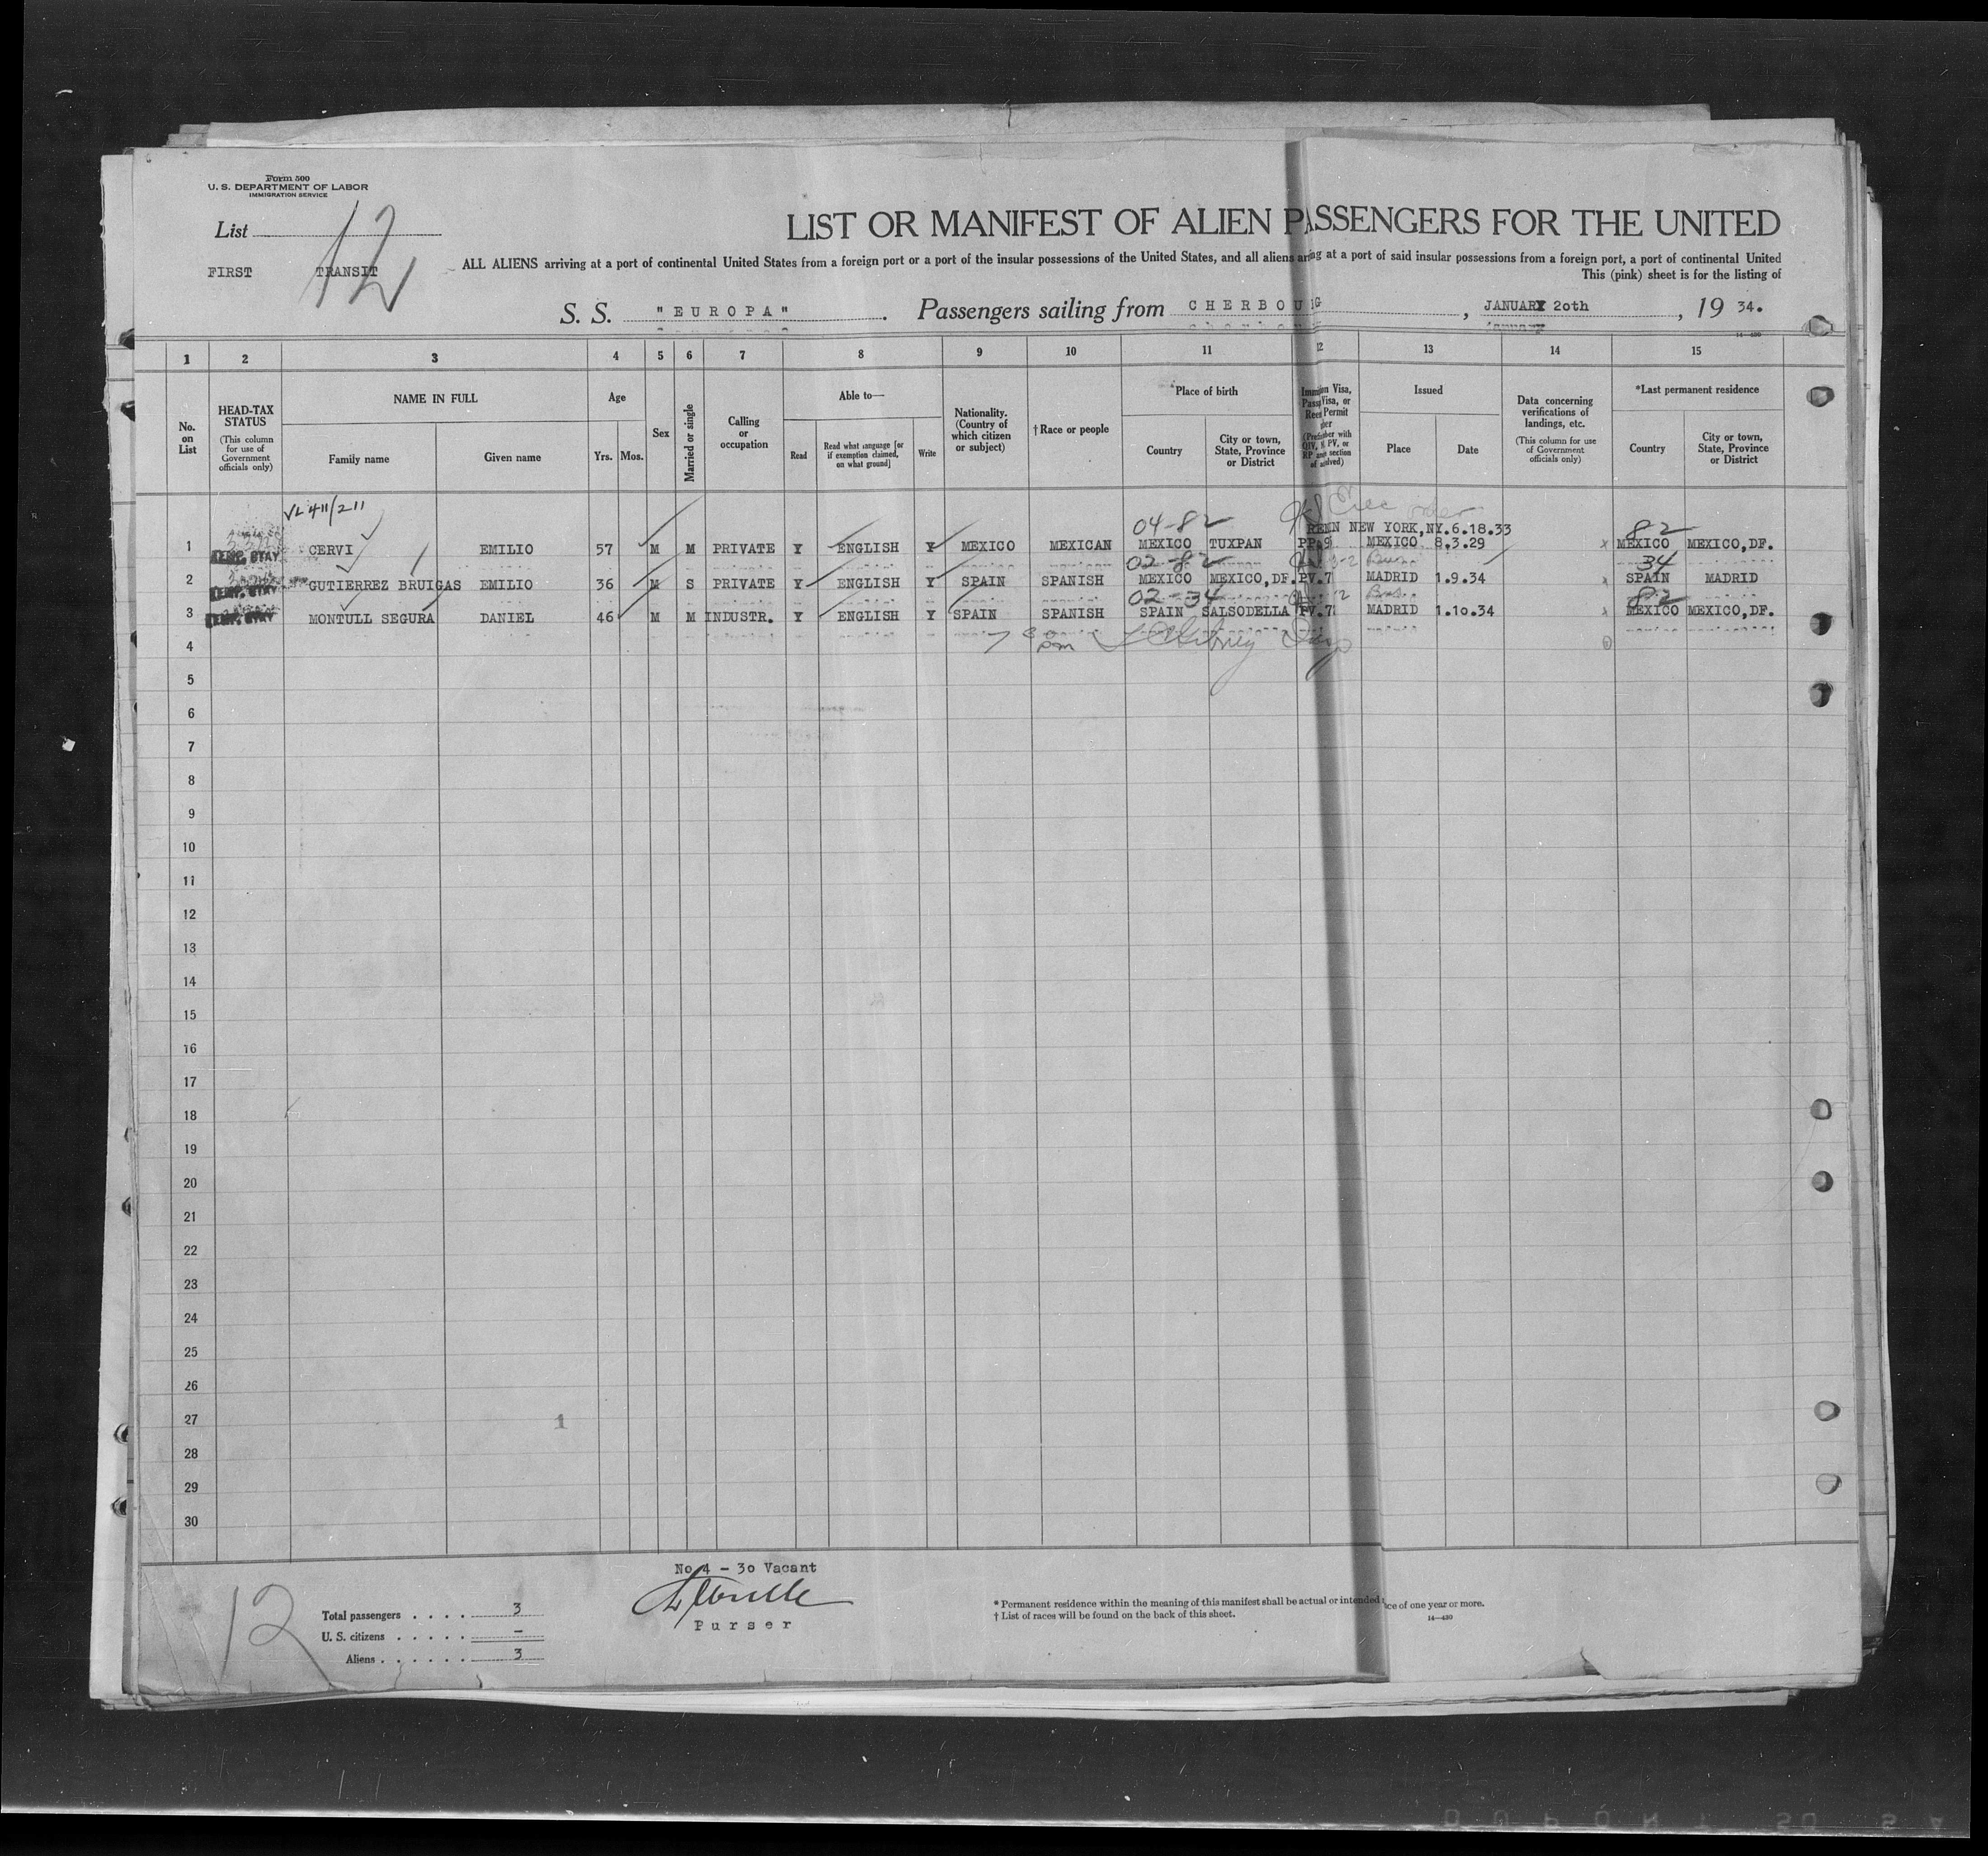 Form 500
U. S. DEPARTMENT OF LABOR
IMMIGRATION SERVICE
List 12
FIRST TRANSIT
LIST OR MANIFEST OF ALIEN PASSENGERS FOR THE UNITED
ALL ALIENS arriving at a port of continental United States from a foreign port or a port of the insular possessions of the United States, and all aliens arriving at a port of said insular possessions from a foreign port, a port of continental United
This (pink) sheet is for the listing of
S. S. "EUROPA". Passengers sailing from CHERBOURG, JANUARY 20th, 19 34.
1 2 3 4 5 6 7 8 9 10 11 12 13 14 15
No. on List
HEAD-TAX STATUS (This column for use of Government officials only)
NAME IN FULL
Family name Given name
Age
Yrs. Mos.
Sex
Married or single
Calling or occupation
Able to—
Read Read what language [or if exemption claimed, on what ground] Write
Nationality. (Country of which citizen or subject)
†Race or people
Place of birth
Country City or town, State, Province or District
Issued
Place Date
Data concerning verifications of landings, etc. (This column for use of Government officials only)
*Last permanent residence
Country City or town, State, Province or District
VL 411/211
04-82 82
NEW YORK,NY.6.18.33
1 TEMP. STAY CERVI EMILIO 57 M M PRIVATE Y ENGLISH Y MEXICO MEXICAN MEXICO TUXPAN PP.9 MEXICO 8.3.29 x MEXICO MEXICO,DF.
02-82 34
2 TEMP. STAY GUTIERREZ BRUIGAS EMILIO 36 M S PRIVATE Y ENGLISH Y SPAIN SPANISH MEXICO MEXICO,DF. PV.7 MADRID 1.9.34 x SPAIN MADRID
02-34 82
3 TEMP. STAY MONTULL SEGURA DANIEL 46 M M INDUSTR. Y ENGLISH Y SPAIN SPANISH SPAIN SALSODELLA PV.7 MADRID 1.10.34 x MEXICO MEXICO,DF.
4
5
6
7
8
9
10
11
12
13
14
15
16
17
18
19
20
21
22
23
24
25
26
27 1
28
29
30
No 4 - 30 Vacant
Purser
12
Total passengers . . . . 3
U. S. citizens . . . . . -
Aliens . . . . . . 3
* Permanent residence within the meaning of this manifest shall be actual or intended
ice of one year or more.
† List of races will be found on the back of this sheet.
14—430